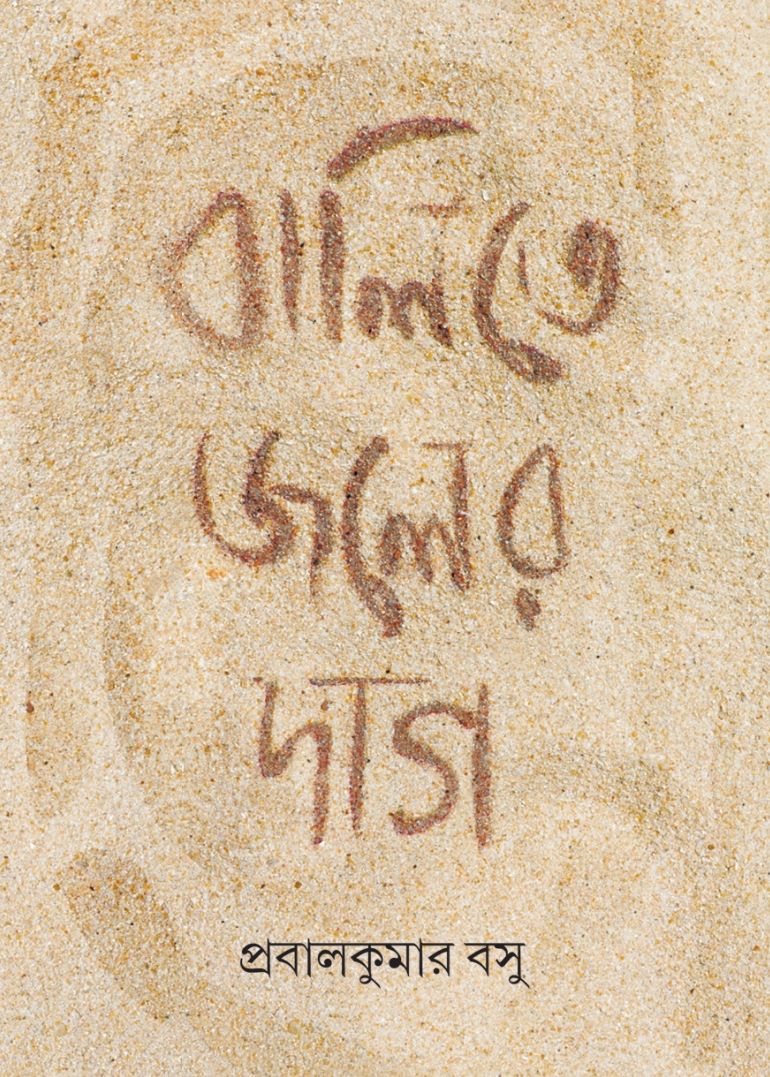 বালিতে
জলের
দাগ
প্রবালকুমার বসু